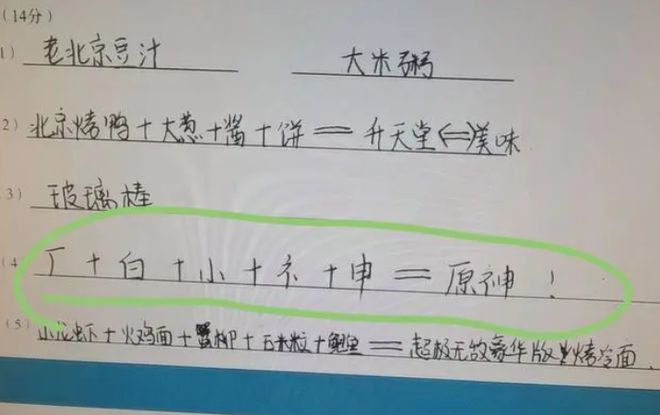 （14分）
1） 老北京豆汁 大米粥
2） 北京烤鸭+大葱+酱+饼=升天堂⇔美味
3） 玻璃棒
（4 丆+白+小+礻+申=原神！
（5） 小龙虾+火鸡面+蟹柳+玉米粒+鲍鱼=超极无敌豪华版烤冷面.